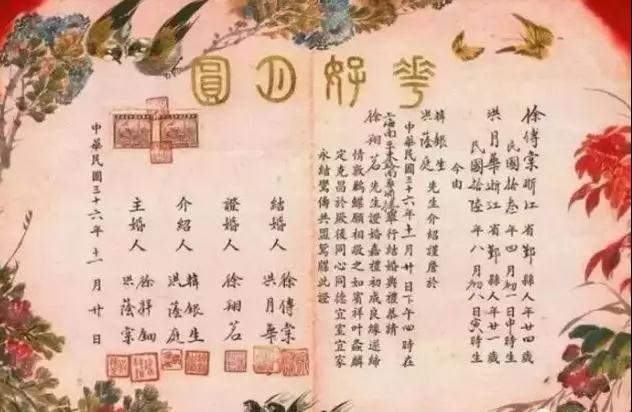 花好月圓
徐傳棠浙江省鄞縣人年廿四歲
民國拾叁年四月初一日申時生
洪月華浙江省鄞縣人年廿一歲
民國拾陸年八月初八日寅時生
今由
韓銀生
洪蔭庭
先生介紹謹詹於
中華民國三十六年十一月廿日下午四時在
上海南京東路南華酒樓舉行結婚典禮恭請
徐翔茗先生證婚嘉禮初成良緣遂締
情敦鶼鰈願相敬之如賓祥叶螽麟
定克昌於厥後同心同德宜室宜家
永結鸞儔共盟鴛牒此證
結婚人
徐傳棠
洪月華
證婚人
徐翔茗
介紹人
韓銀生
洪蔭庭
主婚人
徐 鈿
洪蔭棠
中華民國三十六年十一月廿日